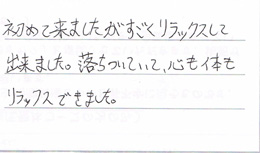 初めて来ましたがすごくリラックスして
出来ました。落ちついていて、心も体も
リラックスできました。